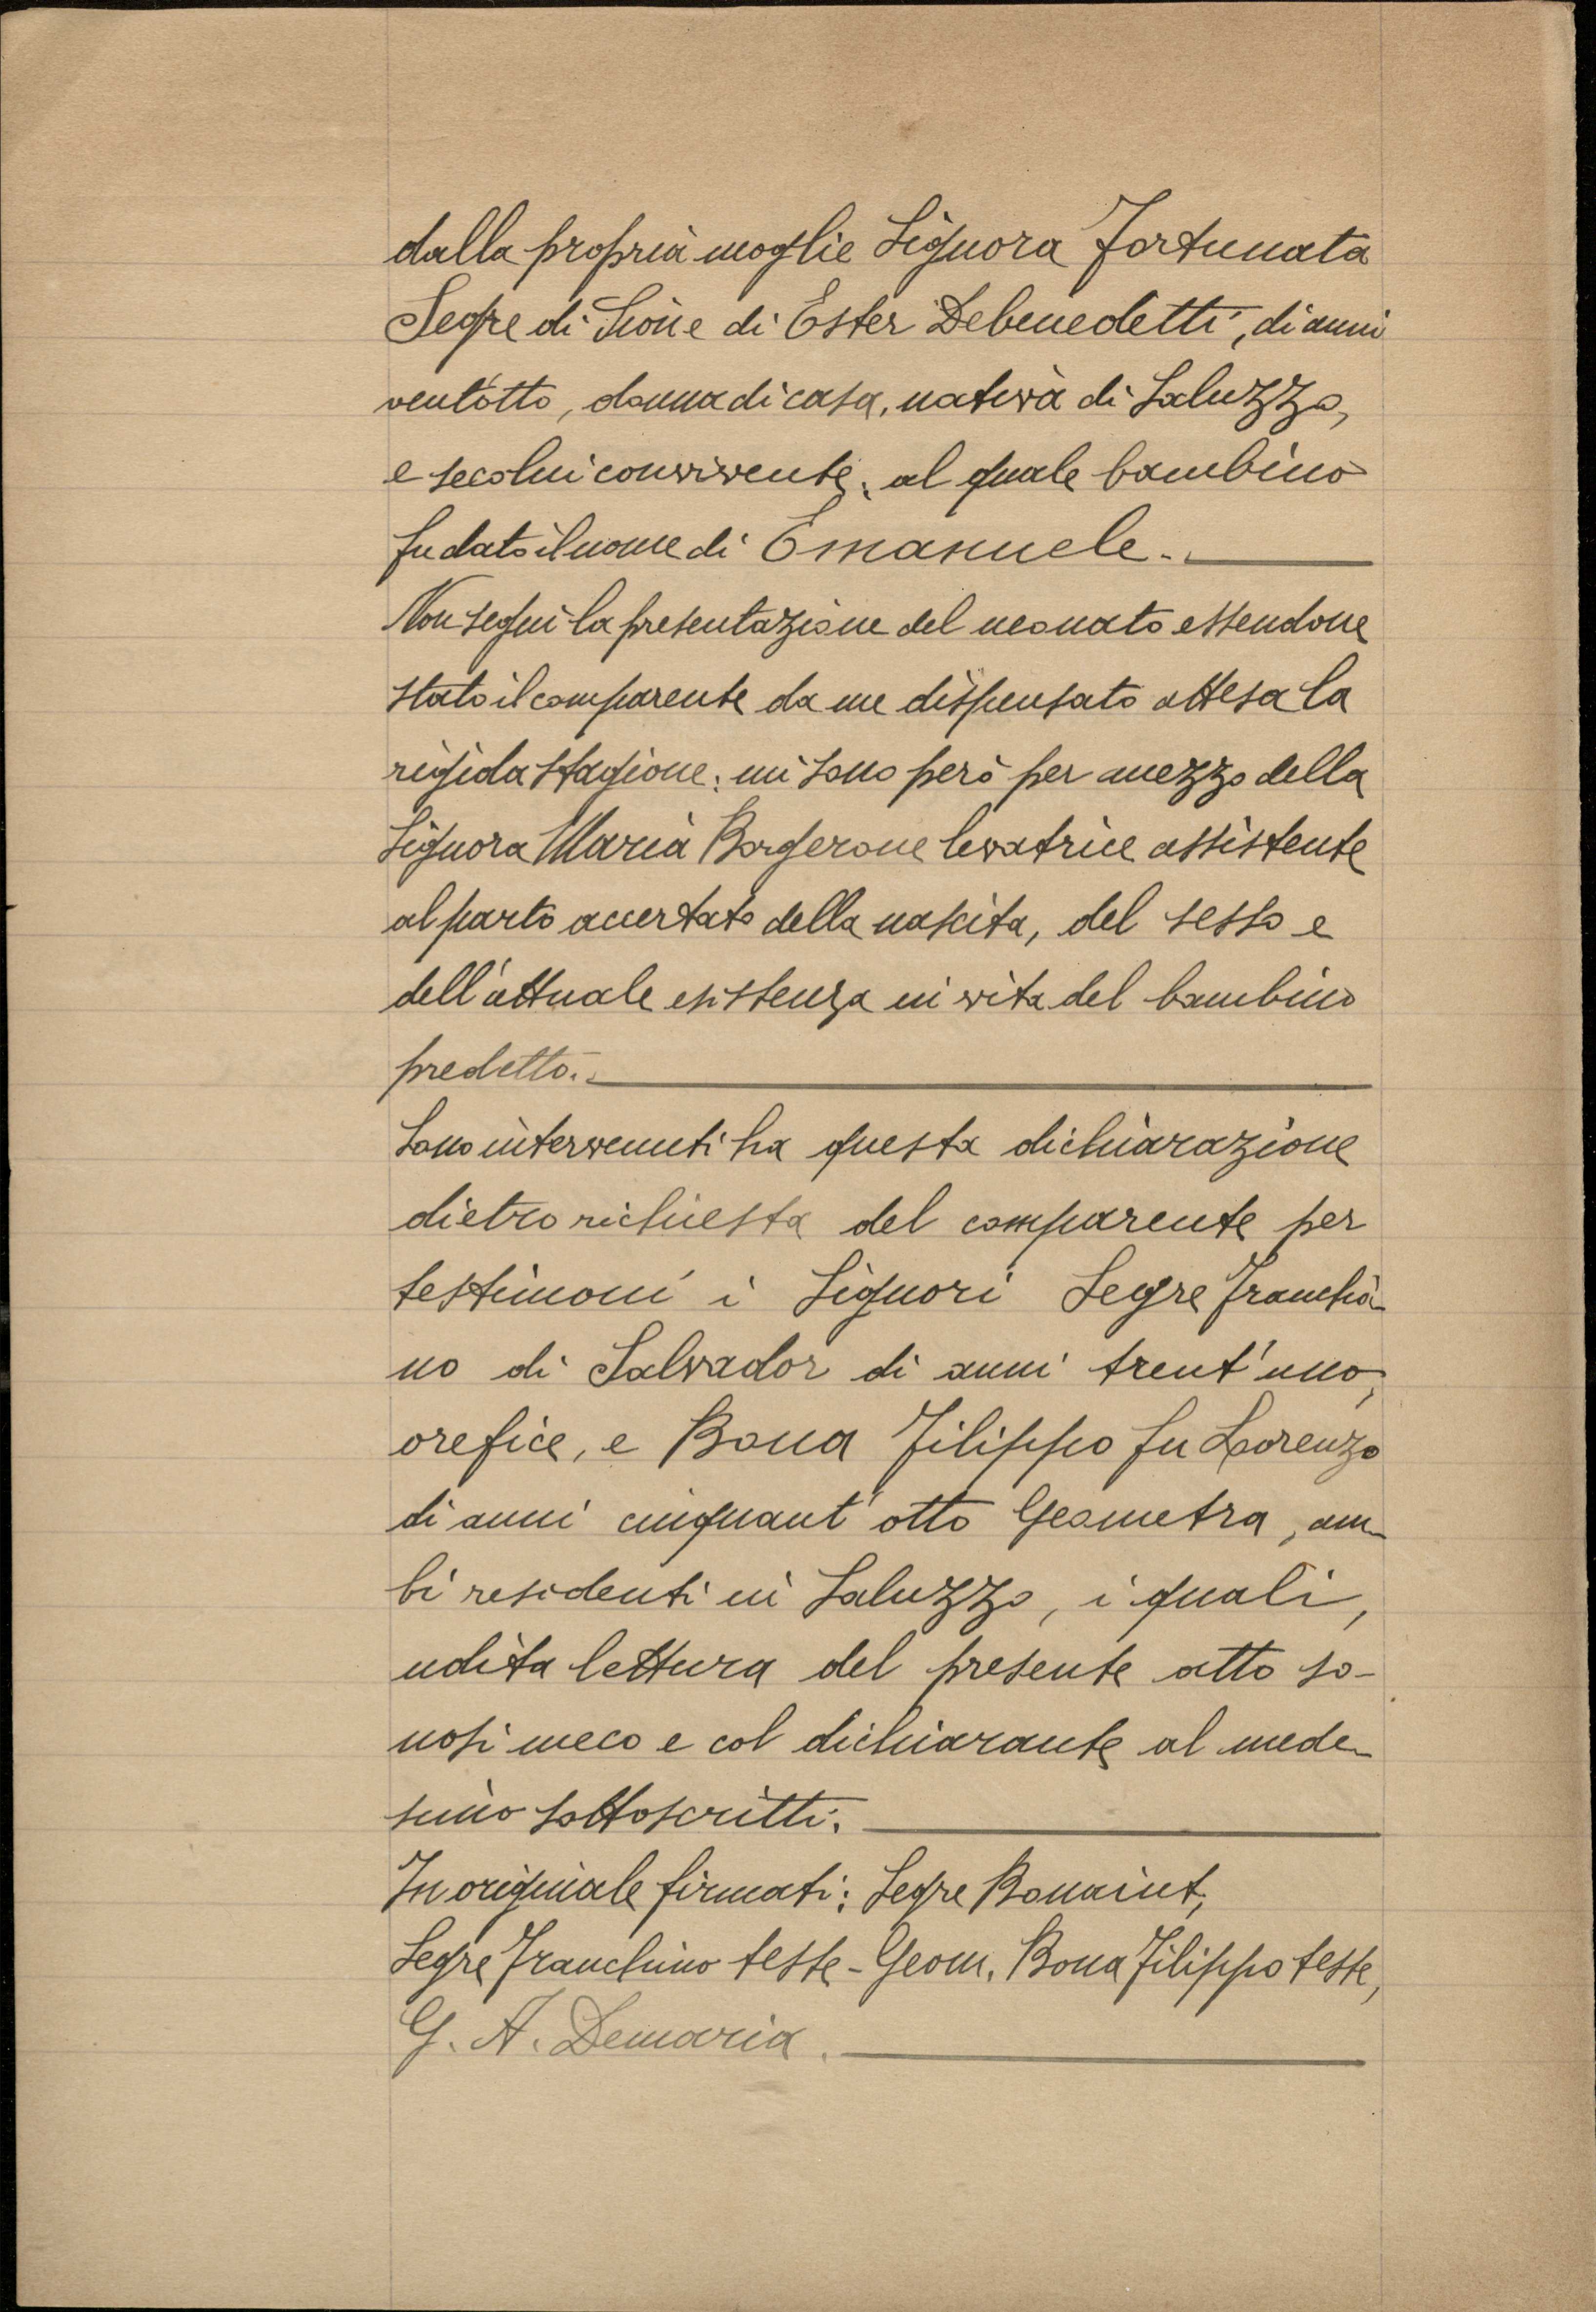 dalla propria moglie Signora Fortunata
Segre di Sion e di Ester Debenedetti, di anni
vent'otto, donna di casa, nativa di Saluzzo,
e secolui convivente; al quale bambino
fu dato il nome di Emanuele.
Non seguì la presentazione del neonato essendone
stato il comparente da me dispensato attesa la
rigida stagione; mi sono però per mezzo della
Signora Maria Borgerone levatrice assistente
al parto accertato della nascita, del sesso e
dell'attuale esistenza in vita del bambino
predetto.
Sono intervenuti ha questa dichiarazione
dietro richiesta del comparente per
testimoni i Signori Segre Franchi-
no di Salvador di anni trent'uno,
orefice, e Bona Filippo fu Lorenzo
di anni cinquant'otto Geometra, am-
bi residenti in Saluzzo, i quali,
udita lettura del presente atto so-
nosi meco e col dichiarante al mede-
simo sottoscritti.
In originale firmati: Segre Bonaiut,
Segre Franchino teste - Geom. Bona Filippo teste,
G. A. Demaria.